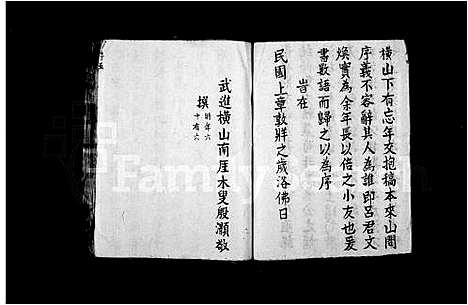 橫山下有忘年交抱稿本來山問
序義不容辭其人為誰即呂君文
煥實為余年長以倍之小友也爰
書數語而歸之以為序
峕在
民國上章敦牂之歲浴佛日
武進橫山南厓木叟殷灝敬
撰 時年六
十有六